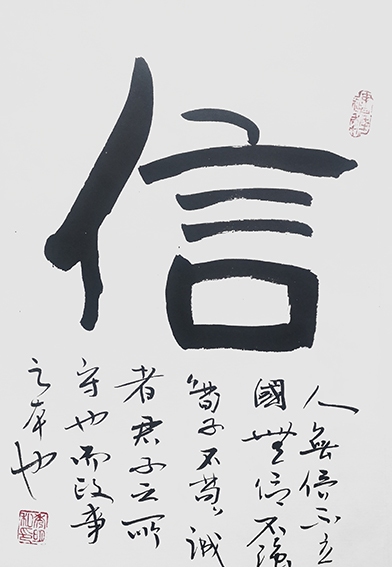 信
人無信不立
國無信不強
荀子不苟、誠
者君子之所
守也而政事
之本也